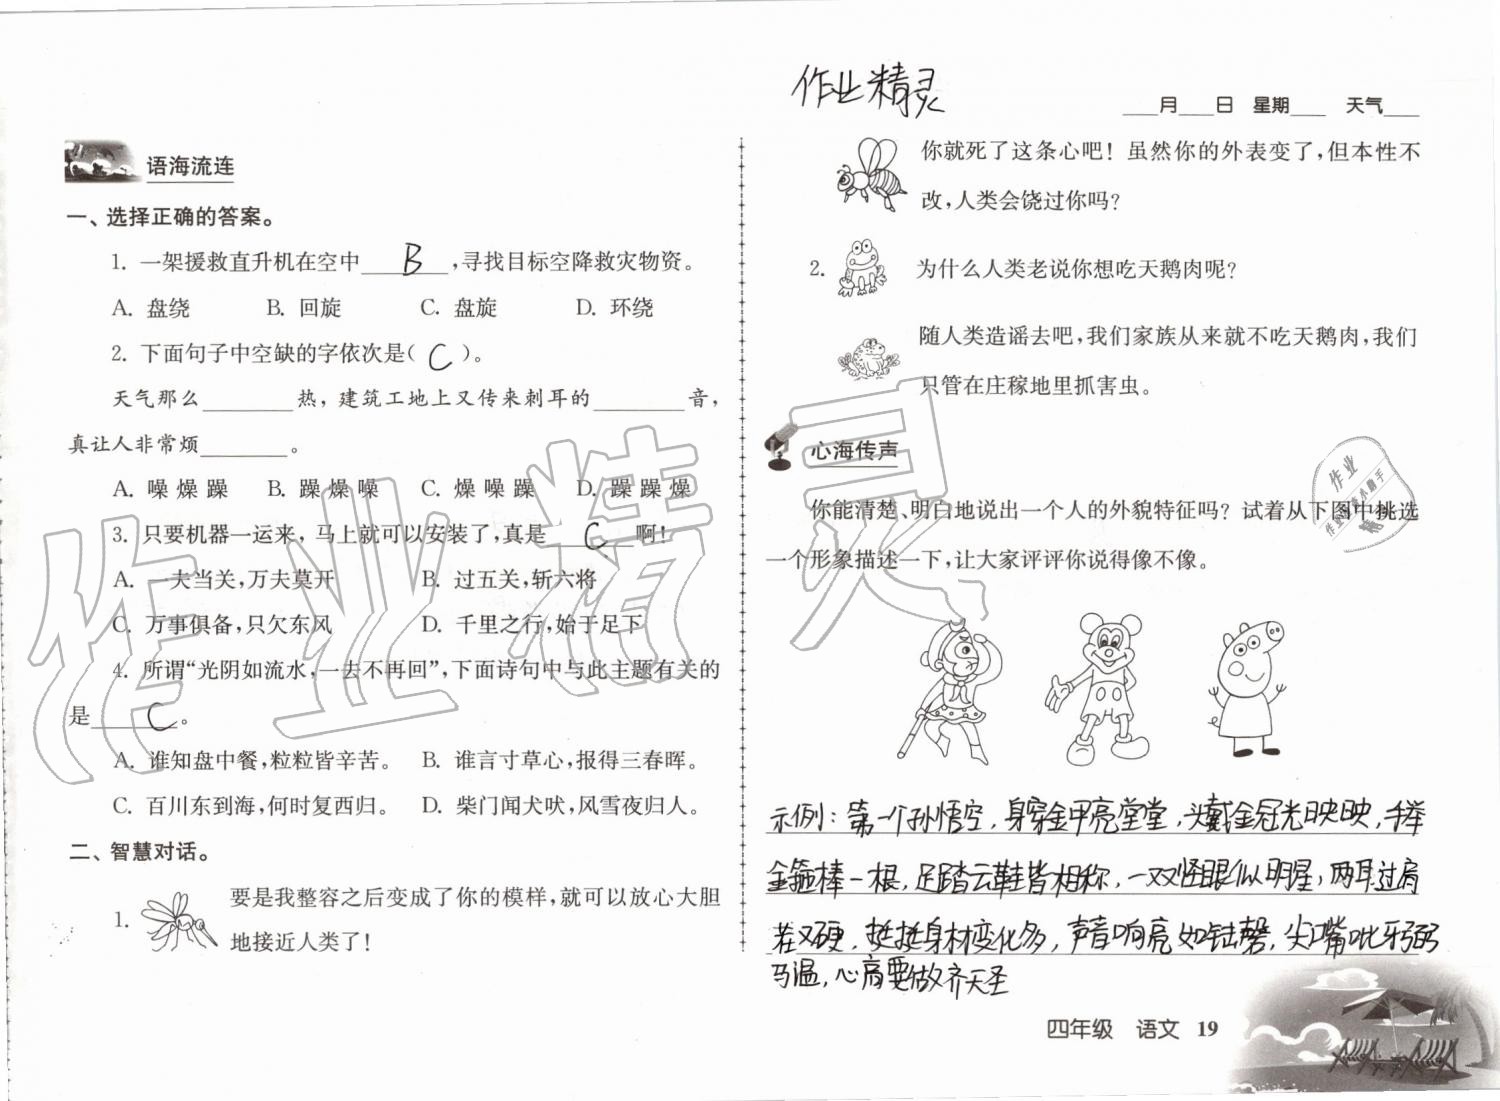 作业精灵
____月____日 星期____ 天气____
语海流连
一、选择正确的答案。
1. 一架援救直升机在空中 B ,寻找目标空降救灾物资。
A. 盘绕 B. 回旋 C. 盘旋 D. 环绕
2. 下面句子中空缺的字依次是( C )。
天气那么________热，建筑工地上又传来刺耳的________音，
真让人非常烦________。
A. 噪 燥 躁 B. 躁 燥 噪 C. 燥 噪 躁 D. 躁 躁 燥
3. 只要机器一运来，马上就可以安装了,真是 C 啊!
A. 一夫当关,万夫莫开 B. 过五关,斩六将
C. 万事俱备,只欠东风 D. 千里之行,始于足下
4. 所谓“光阴如流水,一去不再回”,下面诗句中与此主题有关的
是 C 。
A. 谁知盘中餐,粒粒皆辛苦。 B. 谁言寸草心,报得三春晖。
C. 百川东到海,何时复西归。 D. 柴门闻犬吠,风雪夜归人。
二、智慧对话。
1. 要是我整容之后变成了你的模样,就可以放心大胆
地接近人类了!
你就死了这条心吧！虽然你的外表变了,但本性不
改,人类会饶过你吗?
2. 为什么人类老说你想吃天鹅肉呢?
随人类造谣去吧,我们家族从来就不吃天鹅肉,我们
只管在庄稼地里抓害虫。
心海传声
你能清楚、明白地说出一个人的外貌特征吗？试着从下图中挑选
一个形象描述一下,让大家评评你说得像不像。
示例：第一个孙悟空，身穿金甲亮堂堂，头戴金冠光映映，手举
金箍棒一根，足踏云鞋皆相称，一双怪眼似明星，两耳过肩
若又硬，挺挺身材变化多，声音响亮如钟磬，尖嘴呲牙弼
马温，心高要做齐天圣
四年级 语文 19
作业精灵